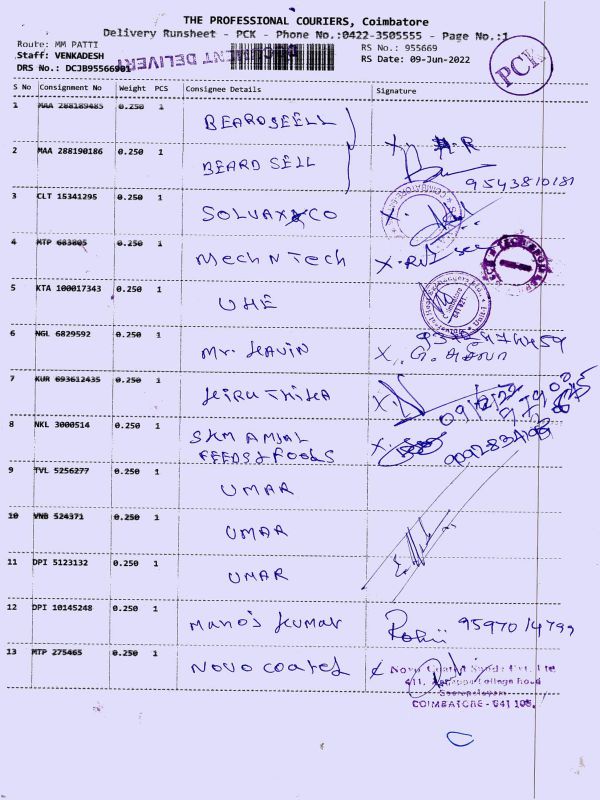 THE PROFESSIONAL COURIERS, Coimbatore
Delivery Runsheet - PCK - Phone No.:0422-3505555 - Page No.:1
Route: MM PATTI RS No.: 955669
Staff: VENKADESH RS Date: 09-Jun-2022
DRS No.: DCJB95566901
URGENT DELIVERY
PCK
S No Consignment No Weight PCS Consignee Details Signature
1 MAA 288189485 0.250 1 BEARDSELL
2 MAA 288190186 0.250 1 BEARD SELL
9543810181
3 CLT 15341295 0.250 1 SOLVAX CO
4 MTP 683805 0.250 1 Mech N Tech
5 KTA 100017343 0.250 1 UHE
6 NGL 6829592 0.250 1 Mr. KAVIN
7 KUR 693612435 0.250 1 KIRUTHIKA
8 NKL 3000514 0.250 1 SKM ANJAL
FEEDS & FOODS
9 TVL 5256277 0.250 1 UMAR
10 VNB 524371 0.250 1 UMAR
11 DPI 5123132 0.250 1 UMAR
12 DPI 10145248 0.250 1 Manoj Kumar 9597014799
13 MTP 275465 0.250 1 Novo coated
COIMBATORE - 641 105.